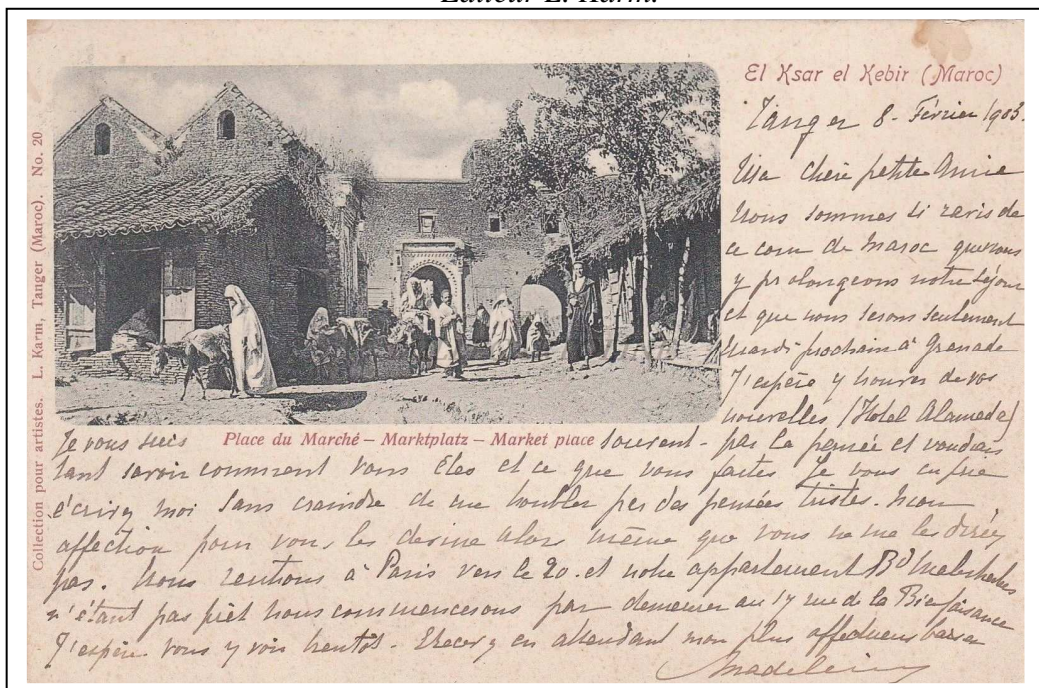 Editeur L. Karm.
El Ksar el Kebir (Maroc)
Collection pour artistes. L. Karm, Tanger (Maroc). No. 20
Tanger 8 - Février 1903.
Ma chère petite Amie
Nous sommes si ravis de
ce coin de Maroc que nous
y prolongeons notre séjour
et que nous serons seulement
Mardi prochain à Grenade
J'espère y trouver de vos
nouvelles (Hotel Alameda)
Je vous suis
Place du Marché – Marktplatz – Market place
souvent - par la pensée et voudrais
tant savoir comment vous êtes et ce que vous faites Je vous en prie
écrivez moi sans craindre de me troubler par des pensées tristes. Mon
affection pour vous les devine alors même que vous ne me les direz
pas. Nous rentrons à Paris vers le 20. et notre appartement Bd Malesherbes
n'étant pas prêt nous commencerons par demeurer au 17 rue de la Bienfaisance
J'espère vous y voir bientôt - Recevez en attendant mon plus affectueux baiser